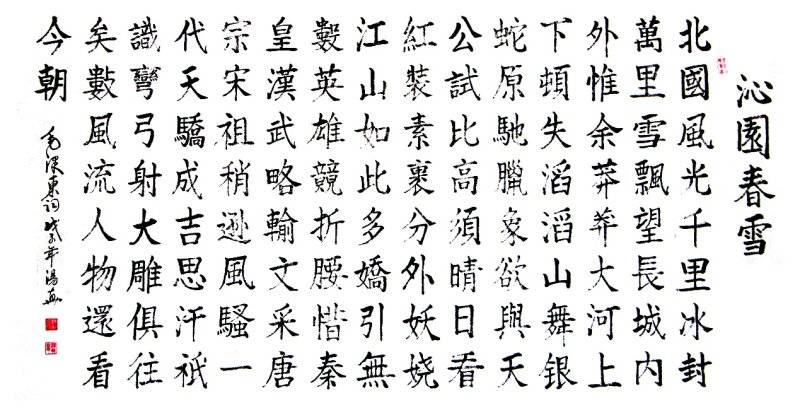 沁園春雪
北國風光千里冰封
萬里雪飄望長城內
外惟余莽莽大河上
下頓失滔滔山舞銀
蛇原馳臘象欲與天
公試比高須晴日看
紅裝素裹分外妖娆
江山如此多嬌引無
數英雄競折腰惜秦
皇漢武略輸文采唐
宗宋祖稍遜風騷一
代天驕成吉思汗祇
識彎弓射大雕俱往
矣數風流人物還看
今朝
毛澤東詞戊子年湯